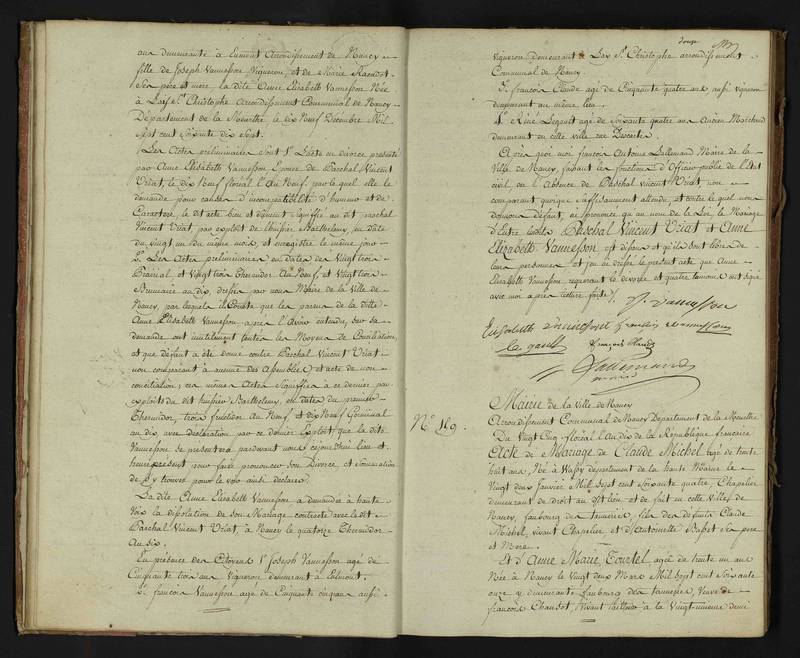 ans demeurante à Eumont Arrondissement de Nancy
fille de Joseph Vannesson Vigneron, et de Marie
Ses père et mere, la dite Anne Elisabeth Vannesson Née
à Lay St Christophe Arrondissement Communal de Nancy
Département de la Meurthe, le dix Neuf Décembre Mil
Sept cent soixante dix sept.
Les Actes preliminaires sont 1° L'acte en divorce presenté
par Anne Elisabeth Vannesson Epouse de Paschal Vincent
Vriat, le dix Neuf floréal l'An Neuf, par lequel elle le
demande pour causes d'incompatibilité d'humeur et de
Caractere, le dit acte bien et duement signifié au dit paschal
Vincent Vriat, par exploit de l'huissier Barthelemy en date
du vingt un du même mois, et enregistré le même jour
2° Les Actes preliminaires en dates des Vingt trois
Prairial et Vingt trois Thermidor An Neuf, et Vingt trois
Brumaire an dix, dressés par nous Maire de la Ville de
Nancy, par lesquels il Conste que les parens de la ditte
Anne Elisabeth Vannesson après l'avoir entendue, sur sa
demande ont inutilement tentés les Moyens de Conciliation,
et que défaut a été donné contre Paschal Vincent Vriat
non comparant à aucune des Assemblées et acte de non
conciliation; ces mêmes Actes signifiés à ce dernier par
exploits du dit huissier Barthelemy, en dates du premier
Thermidor, trois fructidor An Neuf et dix Neuf Germinal
an dix avec declaration par ce dernier Exploit que la dite
Vannesson se presentera pardevant nous cejourd'hui lieu et
heure present pour faire prononcer son Divorce, et sommation
de s'y trouver pour le voir ainsi declarer
La dite Anne Elisabeth Vannesson a demandée à haute
Voix la dissolution de son Mariage contracté avec le dit
Paschal Vincent Vriat à Nancy le quatorze Thermidor
An six.
En présence des Citoyens 1° Joseph Vannesson agé de
Cinquante trois ans Vigneron demeurant à
2° françois Vannesson agé de Cinquante cinq ans aussi
vigneron Demeurant à Lay St Christophe arrondissement
Communal de Nancy.
3° françois Claude agé de Cinquante quatre ans aussi vigneron
demeurant au même lieu.
4° Réné Legault agé de soixante quatre ans Ancien Marchand
demeurant en cette ville rue
Après quoi moi françois Antoine Lallemand Maire de la
Ville de Nancy, faisant les fonctions d'Officier public de l'Etat
civil, en l'Absence de Paschal Vincent Vriat, non
comparant quoique suffisamment attendu, et contre lequel nous
donnons défaut, ai prononcé qu'au nom de la Loi, le Mariage
d'Entre lesdits Paschal Vincent Vriat et Anne
Elizabeth Vannesson est dissous et qu'ils sont libres de
leurs personnes et j'en ai dressé le present acte que Anne
Elisabeth Vannesson requerant le divorce et quatre temoins ont signé
avec moi après lecture faite.
J. Vannesson
Elisabeth Vannesson françois Vannesson
Legault françois Claude
Lallemand
maire
N° 119.
Mairie de la Ville de Nancy
Arrondissement Communal de Nancy Departement de la Meurthe
Du Vingt Cinq floréal l'An dix de la République française
Acte de Mariage de Claude Michel agé de trente
huit ans, Né à Vassy departement de la haute Marne le
Vingt deux Janvier Mil Sept cent soixante quatre, Chapelier
demeurant de Droit au dit lieu et de fait en cette Ville de
Nancy, faubourg des tanneries, fils des defunts Claude
Michel, vivant Chapelier et d'Antoinette Basset Ses pere
et Mere.
Et d'Anne Marie Tourtel agée de trente un ans
Née à Nancy le Vingt deux Mars Mil Sept cent soixante
onze y demeurante faubourg des tanneries, Veuve de
françois Chaudot, vivant tailleur à la Vingt-unieme demi